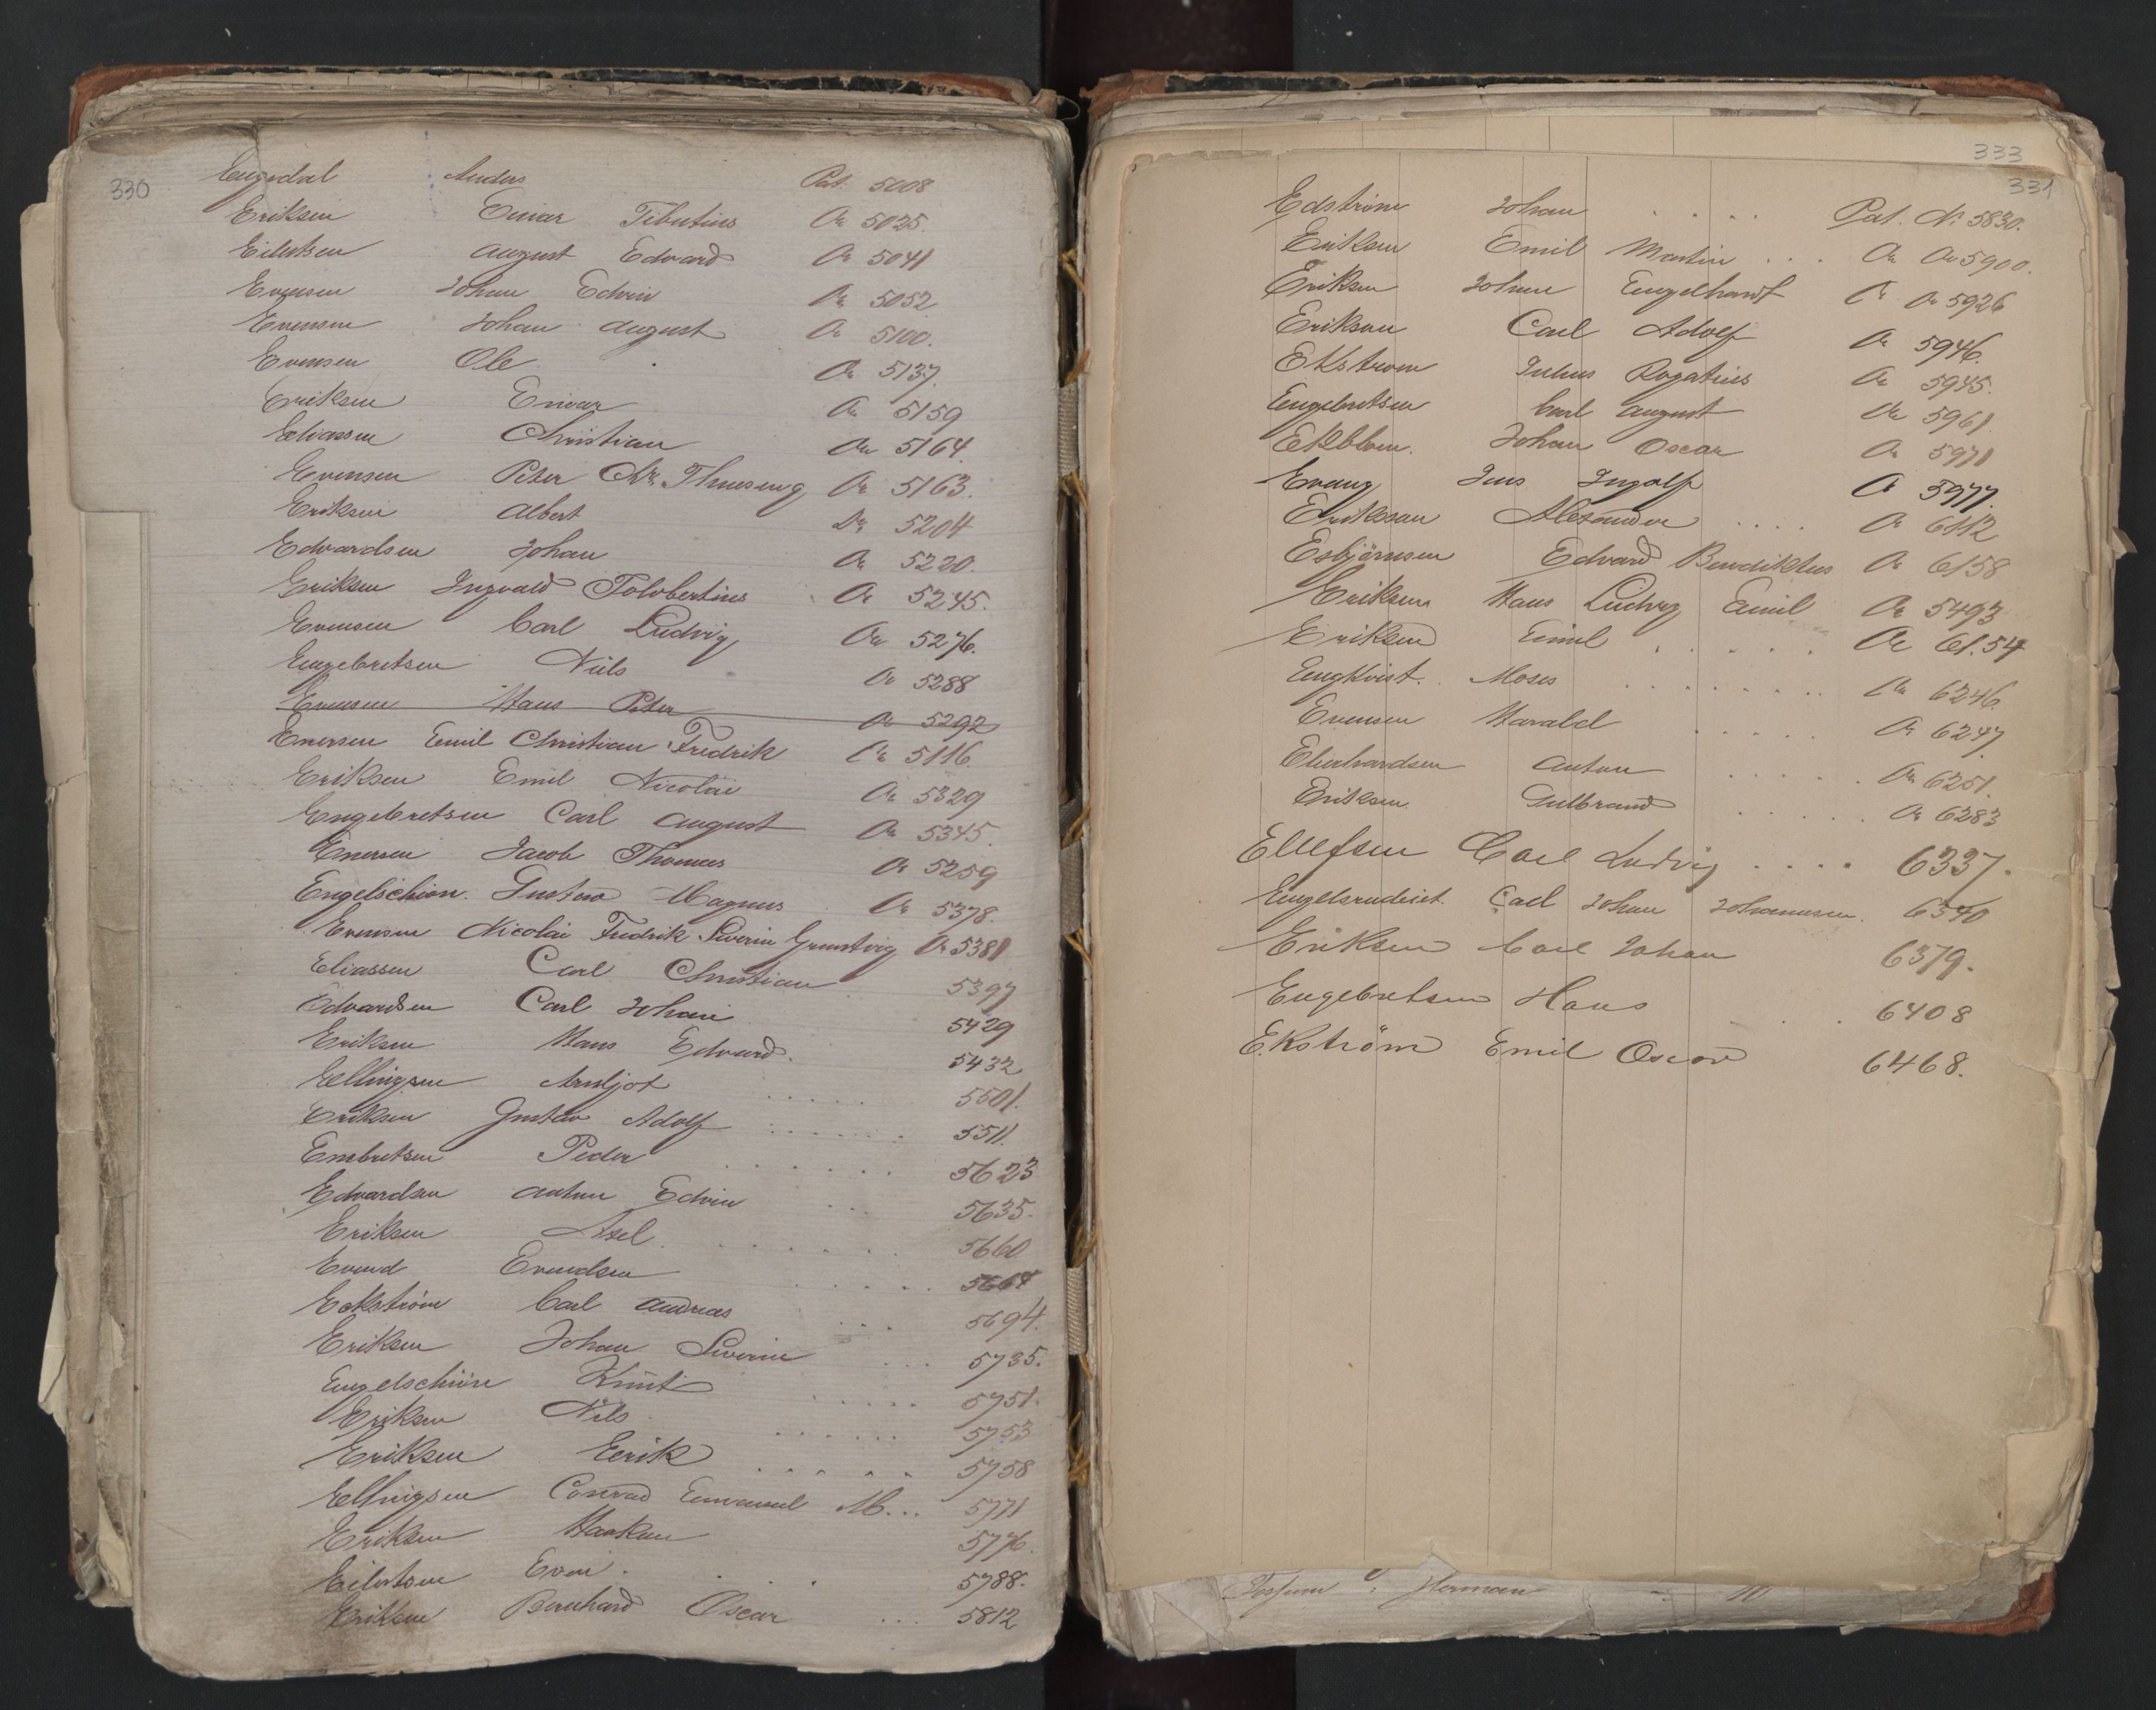 330
Engedal Anders Pat. 5008
Eriksen Einar Tibutius Do 5025.
Eilertsen August Edvard Do 5041
Evensen Johan Edvin Do 5052
Evensen Johan August Do 5100.
Evensen Ole Do 5137.
Eriksen Einar Do 5159
Eliassen Christian Do 5164.
Evensen Peter Chr. Do 5163.
Eriksen Albert Do 5204
Edvardsen Johan Do 5220.
Eriksen Ingvald Tolobertius Do 5245.
Evensen Carl Ludvig Do 5276.
Engebretsen Nils Do 5288
Evensen Hans Peter Do 5292
Enersen Emil Christian Fredrik Do 5116
Eriksen Emil Nicolai Do 5329
Engebretsen Carl August Do 5345.
Enersen Jacob Thomas Do 5259
Engelschiøn. Gustav Magnus Do 5378.
Evensen Nicolai Fredrik Severin Gruntvig Do 5381
Eliassen Carl Christian 5397
Edvardsen Carl Johan 5429
Eriksen Hans Edvard. 5432
Ellingsen Arnljot 5501.
Eriksen Gustav Adolf 5511.
Embretsen Peder 5623
Edvardsen Anton Edvin 5635.
Eriksen Axel 5660
Evend Evendsen 5664
Eckstrøm Carl Andreas 5694.
Eriksen Johan Severin 5735.
Engelschiøn Knut 5751.
Eriksen Nils 5753
Eriksen Eerik 5758
Ellingsen Conrad Emanuel M... 5771
Eriksen Haakon 5776.
Eilertsen Even. 5788.
Eriksen Bernhard Oscar 5812
333
331
Edström Johan Pat. No 5830.
Eriksen Emil Martin Do Do 5900.
Eriksen Johan Engelhardt Do Do 5926
Erikson Carl Adolf Do 5946.
Ekstrom Julius Rogatius Do 5945.
Engebretsen Carl August Do 5961
Ekblom. Johan Oscar Do 5971
Evang Jens Ingolf Do 5977.
Erikson Alexander Do 6112
Esbjørnsen Edvard Bendiktus Do 6158
Eriksen Hans Ludvig Emil Do 5493
Eriksen Emil Do 61.54
Engkvist. Moses Do 6246.
Evensen Harald Do 6247
Eberhardsen Anton Do 6251.
Eriksen Gulbrand Do 6283
Ellefsen Carl Ludvig 6337.
Engelsrudeiet Carl Johan Johannesen. 6340
Eriksen Carl Johan 6379.
Engebretsen Hans 6408
Ekström Emil Oscar 6468.
Herman